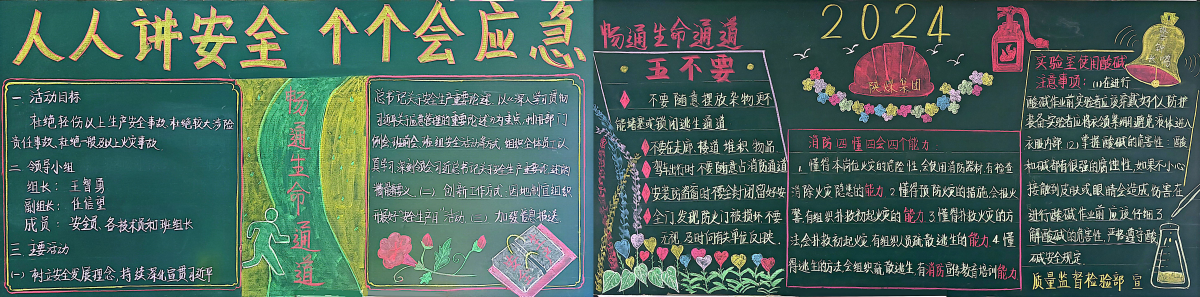 人人讲安全 个个会应急
一 活动目标
杜绝轻伤以上生产安全事故 杜绝较大涉险
责任事故、杜绝一般及以上火灾事故
二 领导小组
组长： 王智勇
副组长： 任信望
成员： 安全员、各技术员和班组长
三 主要活动
(一) 树立安全发展理念，持续深化宣贯习近平
畅通生命通道
总书记关于安全生产重要论述，以《深入学习贯彻
习近平关于应急管理的重要论述》为重点，利用部门
例会 班前会 班组安全活动
真学习 深刻领会习总书记关于安全生产重要论述的
精髓要义，(二) 创新工作方式，因地制宜组织
开展好"安全生产月"活动 (三) 加强信息报送
畅通生命通道
五不要
不要随意摆放杂物更不
能堵塞或锁闭逃生通道
不要在走廊、楼道 堆积 物品
驾车出行时 不要随意占消防通道
安装防盗窗时不要全封闭留好安
全门 发现防火门被损坏不要
无视 及时向有关单位反映
2024
陕煤集团
消防四懂四会四个能力
1. 懂得本岗位火灾的危险性 会使用消防器材 有检查
消除火灾隐患的能力 2 懂得预防火灾的措施 会报火
警 有组织扑救初起火灾的能力 3 懂得扑救火灾的方
法会扑救初起火灾 有组织人员疏散逃生的能力 4 懂
得逃生的方法会组织疏散逃生 有消防宣传教育培训能力
实验室使用酸碱
注意事项： (1) 在进行
酸碱作业前实验者应该穿戴好个人防护
装备 实验者应将衣领掌绷 避免液体进入
衣服内部 (2) 掌握酸碱的危害性：酸
和碱都有很强的腐蚀性，如果不小心
接触到皮肤或眼睛会造成伤害在
进行酸碱作业前应该仔细了
解酸碱的危害性，严格遵守酸
碱安全规定
质量监督检验部 宣